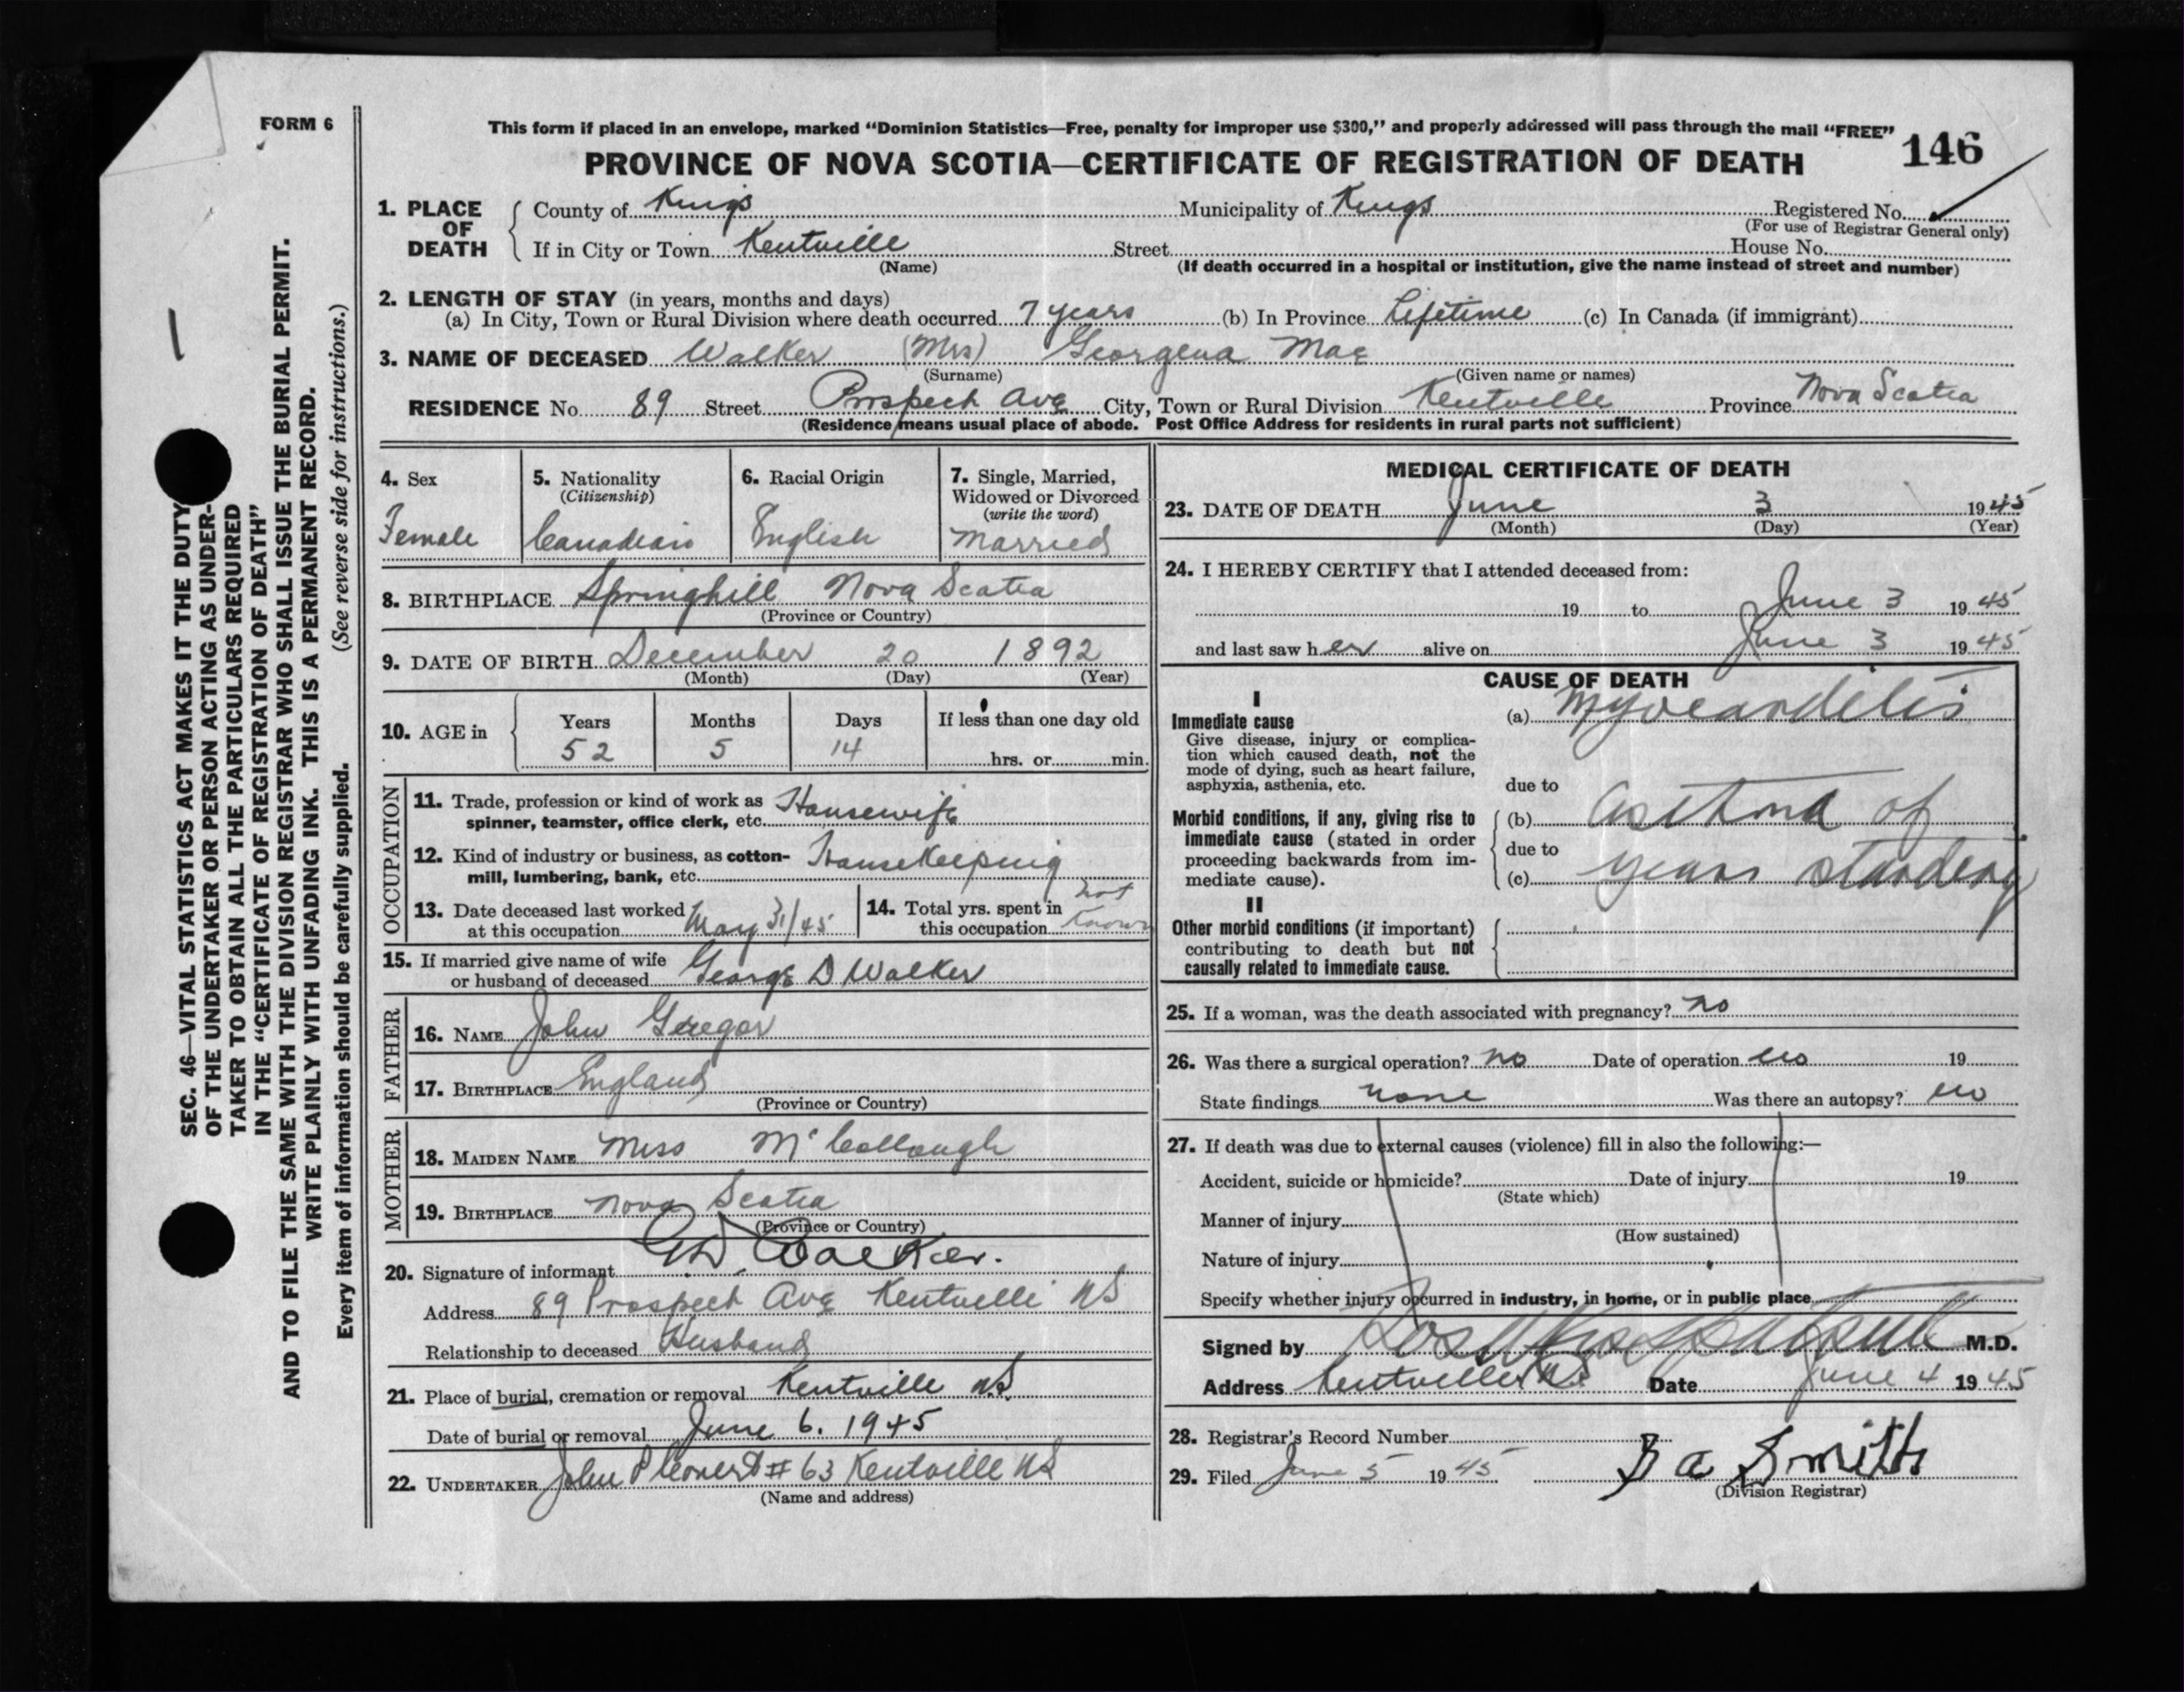 FORM 6
This form if placed in an envelope, marked “Dominion Statistics—Free, penalty for improper use $300,” and properly addressed will pass through the mail “FREE”
146
PROVINCE OF NOVA SCOTIA—CERTIFICATE OF REGISTRATION OF DEATH
SEC. 46—VITAL STATISTICS ACT MAKES IT THE DUTY
OF THE UNDERTAKER OR PERSON ACTING AS UNDER-
TAKER TO OBTAIN ALL THE PARTICULARS REQUIRED
IN THE “CERTIFICATE OF REGISTRATION OF DEATH”
AND TO FILE THE SAME WITH THE DIVISION REGISTRAR WHO SHALL ISSUE THE BURIAL PERMIT.
WRITE PLAINLY WITH UNFADING INK. THIS IS A PERMANENT RECORD.
Every item of information should be carefully supplied. (See reverse side for instructions.)
1. PLACE OF DEATH
County of Kings Municipality of Kings Registered No.
(For use of Registrar General only)
If in City or Town Kentville Street House No.
(Name) (If death occurred in a hospital or institution, give the name instead of street and number)
2. LENGTH OF STAY (in years, months and days)
(a) In City, Town or Rural Division where death occurred 7 years (b) In Province Lifetime (c) In Canada (if immigrant)
3. NAME OF DECEASED Walker (Mrs) Georgena Mae
(Surname) (Given name or names)
RESIDENCE No. 89 Street Prospect Ave City, Town or Rural Division Kentville Province Nova Scotia
(Residence means usual place of abode. Post Office Address for residents in rural parts not sufficient)
4. Sex
Female
5. Nationality
(Citizenship)
Canadian
6. Racial Origin
English
7. Single, Married,
Widowed or Divorced
(write the word)
Married
8. BIRTHPLACE Springhill Nova Scotia
(Province or Country)
9. DATE OF BIRTH December 20 1892
(Month) (Day) (Year)
10. AGE in
Years Months Days If less than one day old
52 5 14 hrs. or min.
OCCUPATION
11. Trade, profession or kind of work as
spinner, teamster, office clerk, etc. Housewife
12. Kind of industry or business, as cotton-
mill, lumbering, bank, etc. HouseKeeping
13. Date deceased last worked
at this occupation May 31/45
14. Total yrs. spent in
this occupation not known
15. If married give name of wife
or husband of deceased George D Walker
FATHER
16. NAME John Gregor
17. BIRTHPLACE England
(Province or Country)
MOTHER
18. MAIDEN NAME Miss McCollough
19. BIRTHPLACE Nova Scotia
(Province or Country)
20. Signature of informant G.D. Walker.
Address 89 Prospect Ave Kentville NS
Relationship to deceased Husband
21. Place of burial, cremation or removal Kentville NS
Date of burial or removal June 6. 1945
22. UNDERTAKER John # 63 Kentville NS
(Name and address)
MEDICAL CERTIFICATE OF DEATH
23. DATE OF DEATH June 3 1945
(Month) (Day) (Year)
24. I HEREBY CERTIFY that I attended deceased from:
19 to June 3 1945
and last saw her alive on June 3 1945
CAUSE OF DEATH
I
Immediate cause
Give disease, injury or complica-
tion which caused death, not the
mode of dying, such as heart failure,
asphyxia, asthenia, etc.
(a) Myocarditis
due to
Morbid conditions, if any, giving rise to
immediate cause (stated in order
proceeding backwards from im-
mediate cause).
(b) Asthma of
due to
(c) years standing
II
Other morbid conditions (if important)
contributing to death but not
causally related to immediate cause.
25. If a woman, was the death associated with pregnancy? no
26. Was there a surgical operation? no Date of operation no 19
State findings none Was there an autopsy? no
27. If death was due to external causes (violence) fill in also the following:—
Accident, suicide or homicide? Date of injury 19
(State which)
Manner of injury
(How sustained)
Nature of injury
Specify whether injury occurred in industry, in home, or in public place
Signed by M.D.
Address Kentville N.S Date June 4 1945
28. Registrar's Record Number
29. Filed June 5 1945 B a Smith
(Division Registrar)